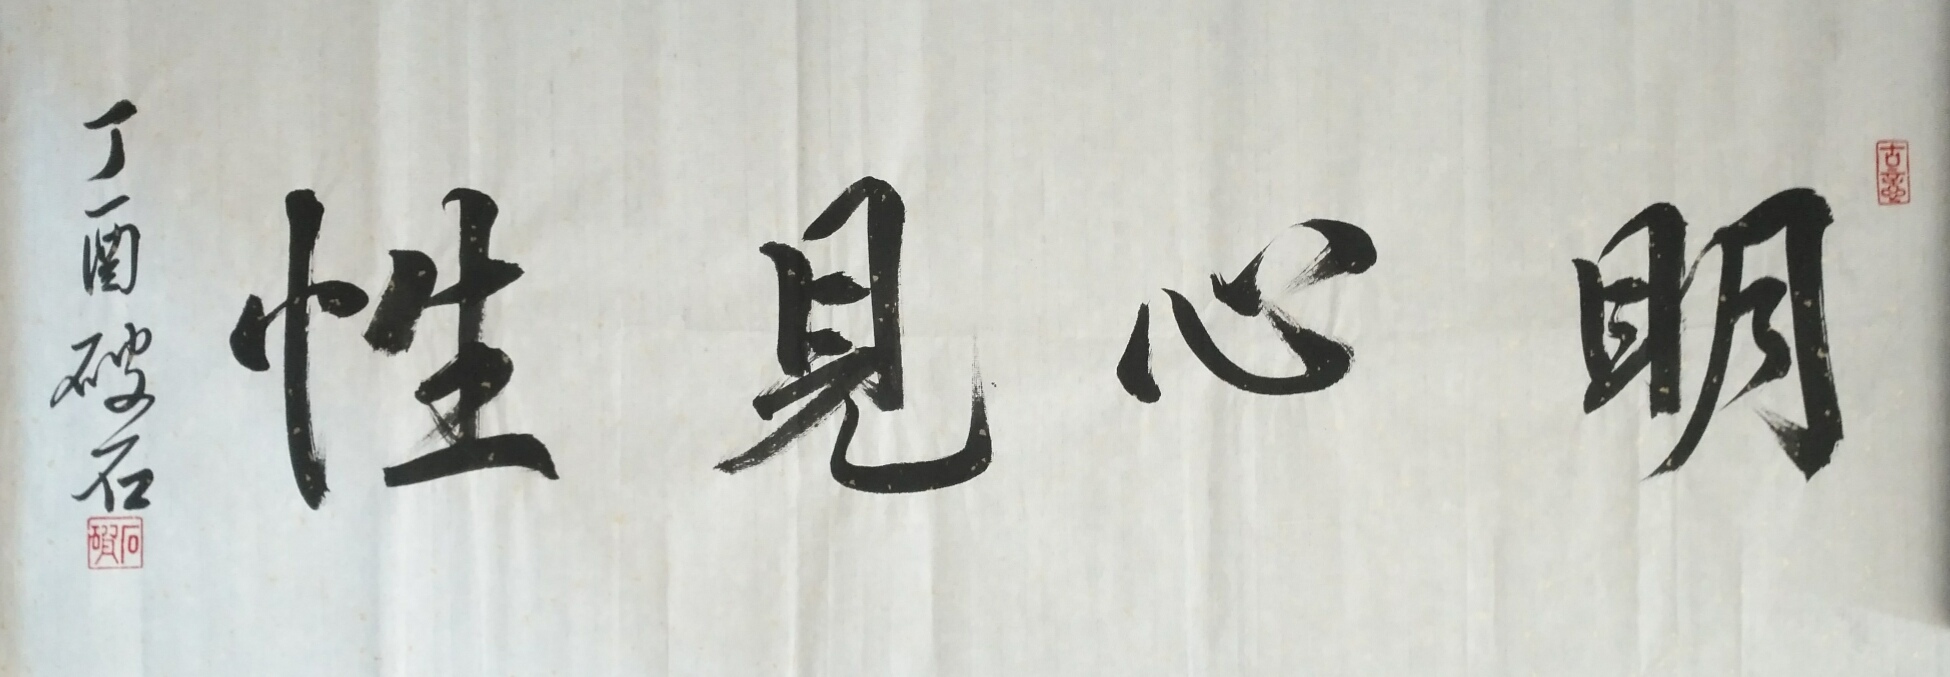 明心見性
丁酉 破石